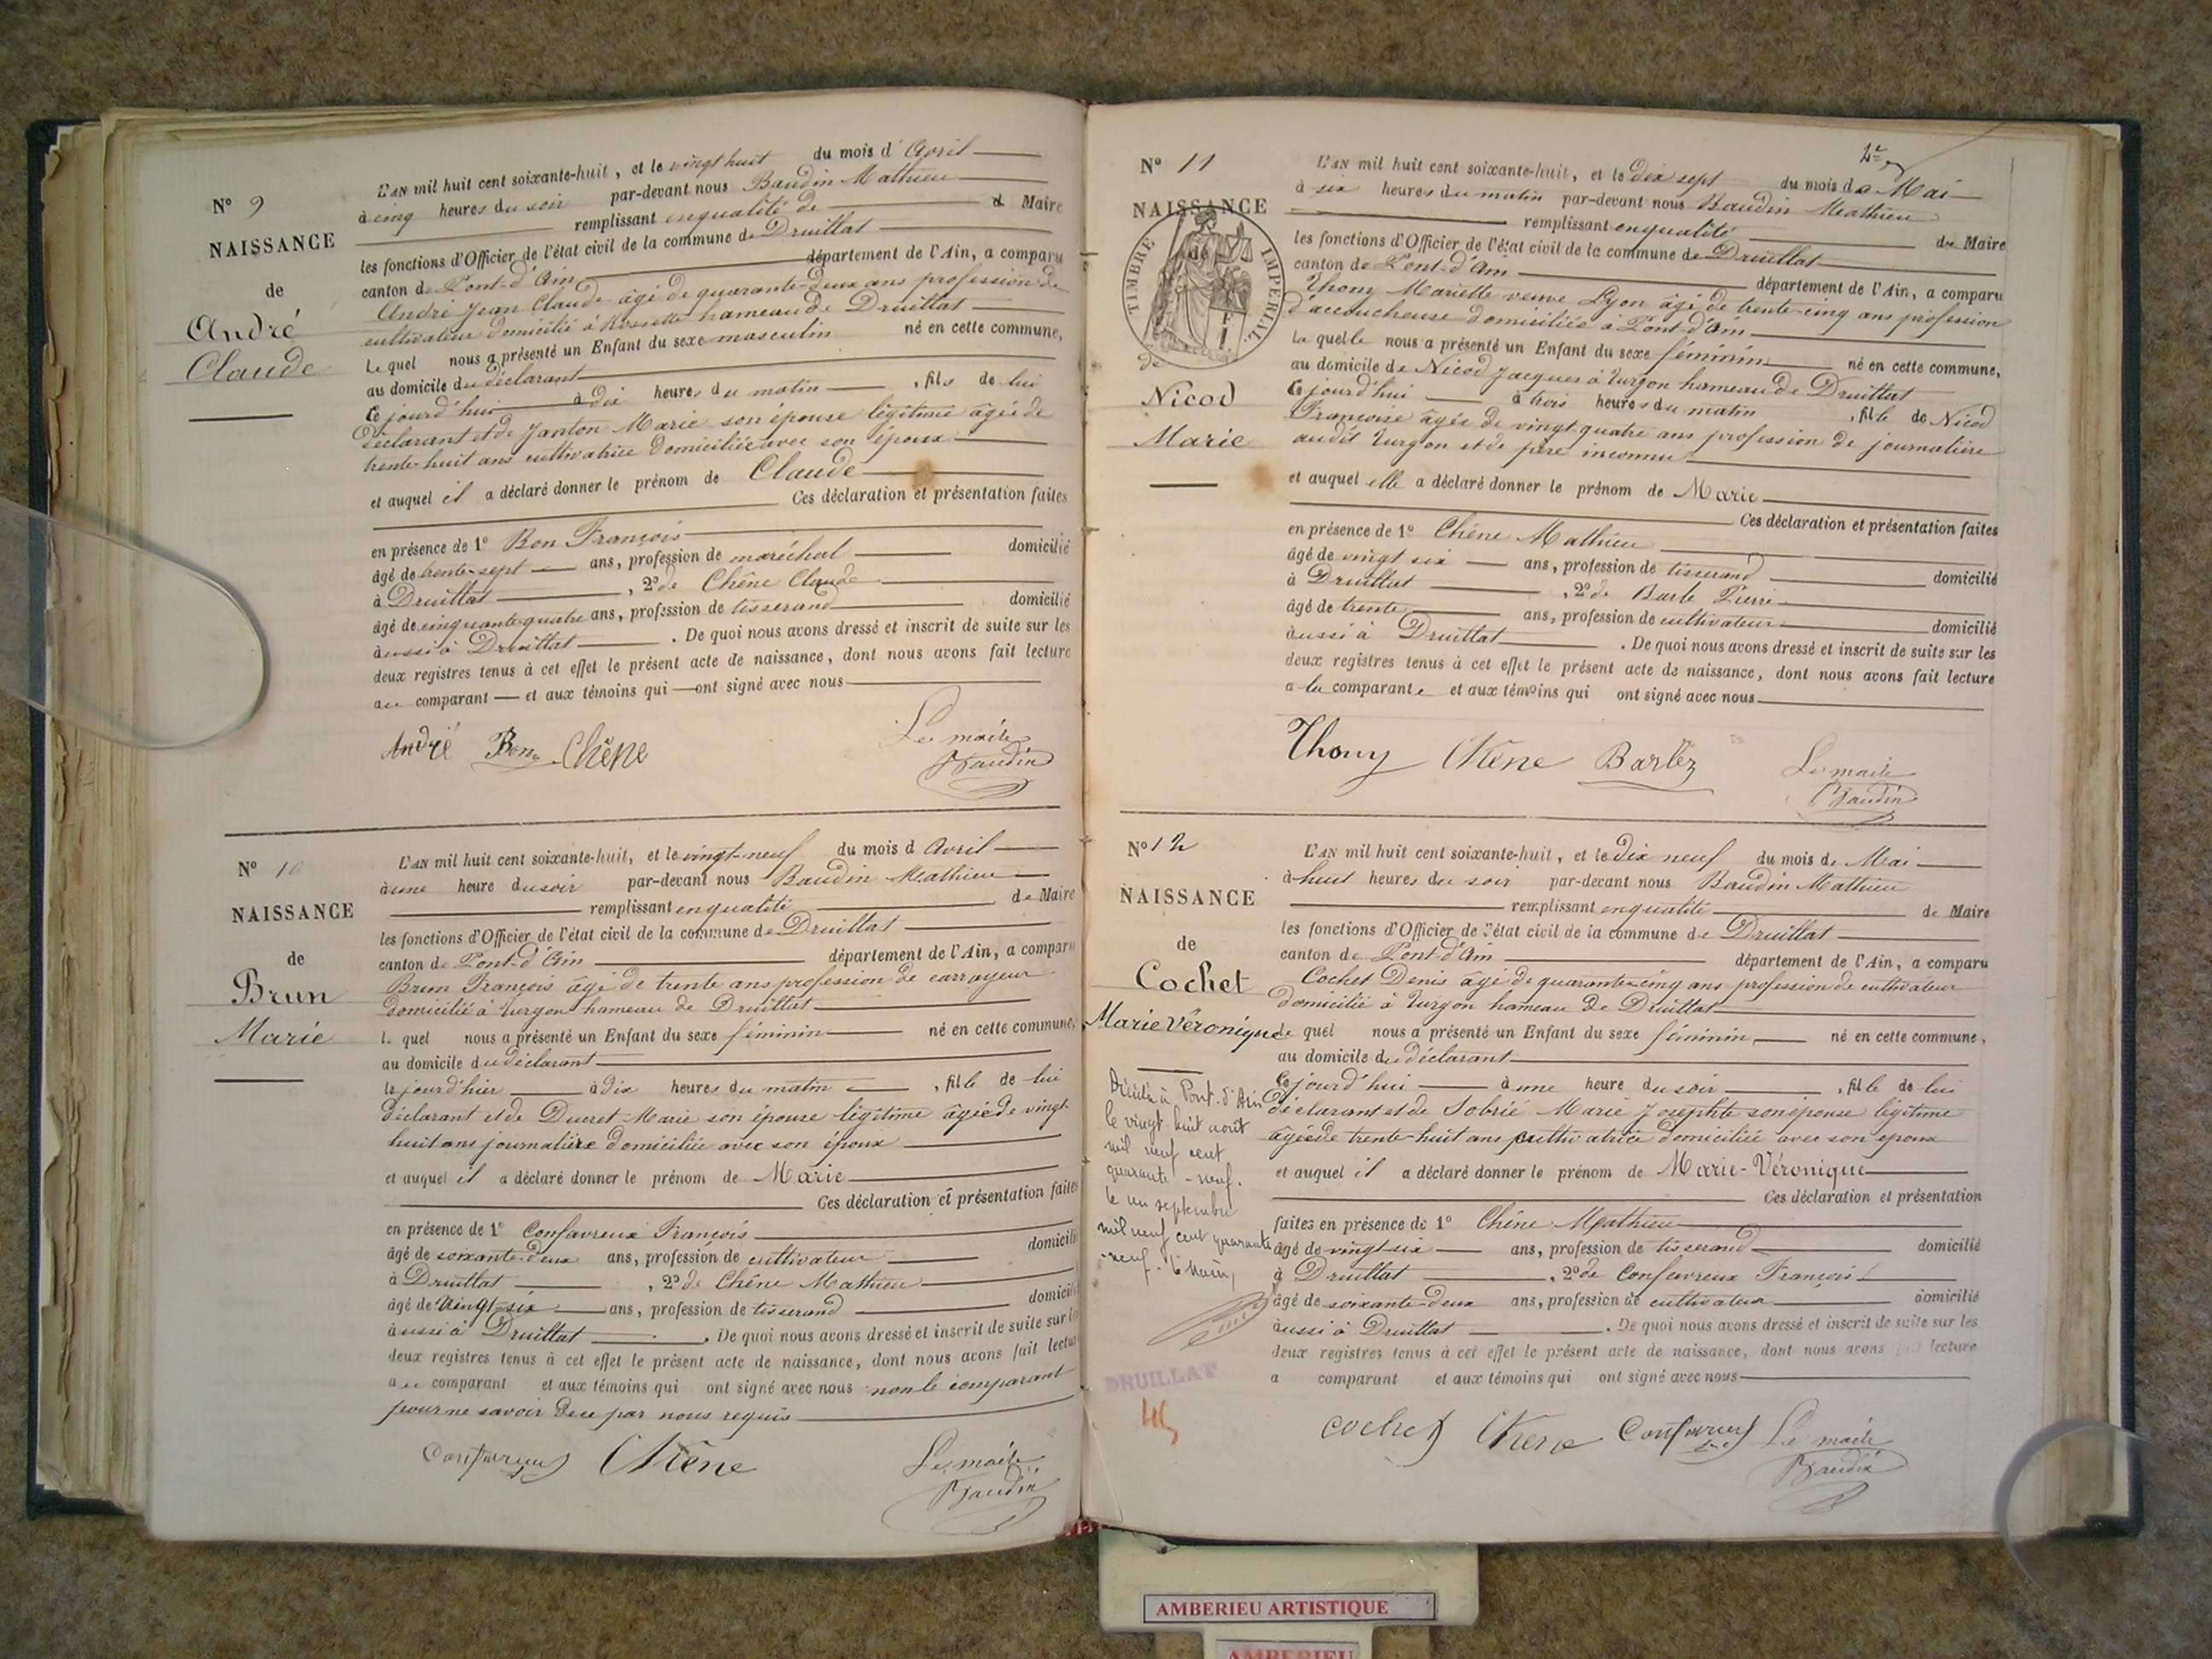 N° 9
NAISSANCE
de
André
Claude
L'AN mil huit cent soixante-huit, et le vingt huit du mois d'Avril
à cinq heures du soir par-devant nous Baudin Mathieu
remplissant en qualité de Maire
les fonctions d'Officier de l'état civil de la commune de Druillat
canton de Pont-d'Ain département de l'Ain, a comparu
André Jean Claude âgé de quarante-deux ans profession de
cultivateur domicilié à Rossette hameau de Druillat
le quel nous a présenté un Enfant du sexe masculin né en cette commune,
au domicile du déclarant
Ce jourd'hui à dix heures du matin, fils de lui
déclarant et de Janton Marie son épouse légitime âgée de
trente-huit ans cultivatrice domiciliée avec son époux
et auquel il a déclaré donner le prénom de Claude
Ces déclaration et présentation faites
en présence de 1° Bon François
âgé de trente-sept ans, profession de maréchal domicilié
à Druillat, 2° de Chêne Claude
âgé de cinquante-quatre ans, profession de tisserand domicilié
aussi à Druillat. De quoi nous avons dressé et inscrit de suite sur les
deux registres tenus à cet effet le présent acte de naissance, dont nous avons fait lecture
au comparant et aux témoins qui ont signé avec nous
André Bon Chêne
Le maire
Baudin
N° 10
NAISSANCE
de
Brun
Marie
L'AN mil huit cent soixante-huit, et le vingt-neuf du mois d Avril
à une heure du soir par-devant nous Baudin Mathieu
remplissant en qualité de Maire
les fonctions d'Officier de l'état civil de la commune de Druillat
canton de Pont-d'Ain département de l'Ain, a comparu
Brun François âgé de trente ans profession de carrayeur
domicilié à Turgon hameau de Druillat
le quel nous a présenté un Enfant du sexe féminin né en cette commune,
au domicile du déclarant
le jourd'hier à dix heures du matin, fille de lui
déclarant et de Ducret Marie son épouse légitime âgée de vingt
huit ans journalière domiciliée avec son époux
et auquel il a déclaré donner le prénom de Marie
Ces déclaration et présentation faites
en présence de 1° Confavreux François
âgé de soixante-deux ans, profession de cultivateur domicilié
à Druillat, 2° de Chêne Mathieu
âgé de vingt-six ans, profession de tisserand domicilié
aussi à Druillat. De quoi nous avons dressé et inscrit de suite sur les
deux registres tenus à cet effet le présent acte de naissance, dont nous avons fait lecture
au comparant et aux témoins qui ont signé avec nous non le comparant
pour ne savoir de ce par nous requis
Confavreux Chêne
Le maire
Baudin
N° 11
NAISSANCE
TIMBRE IMPERIAL
de
de
Nicod
Marie
L'AN mil huit cent soixante-huit, et le dix sept du mois de Mai
à six heures du matin par-devant nous Baudin Mathieu
remplissant en qualité de Maire
les fonctions d'Officier de l'état civil de la commune de Druillat
canton de Pont-d'Ain département de l'Ain, a comparu
Thony Mariette veuve Lyon âgé de trente-cinq ans profession
d'accoucheuse domiciliée à Pont-d'Ain
la quelle nous a présenté un Enfant du sexe féminin né en cette commune,
au domicile de Nicod Jacques à Turgon hameau de Druillat
Ce jourd'hui à trois heures du matin, fille de Nicod
Françoise âgée de vingt quatre ans profession de journalière
audit Turgon et de père inconnu
et auquel elle a déclaré donner le prénom de Marie
Ces déclaration et présentation faites
en présence de 1° Chêne Mathieu
âgé de vingt six ans, profession de tisserand domicilié
à Druillat, 2° de Barle Pierre
âgé de trente ans, profession de cultivateur domicilié
aussi à Druillat. De quoi nous avons dressé et inscrit de suite sur les
deux registres tenus à cet effet le présent acte de naissance, dont nous avons fait lecture
a la comparante et aux témoins qui ont signé avec nous
Thony Chêne
Le maire
Baudin
N° 12
NAISSANCE
de
Cochet
Marie Véronique
Décédée à Pont-d'Ain
le vingt-huit août
mil neuf cent
quarante-neuf.
le un septembre
mil neuf cent quarante
-neuf. le Maire,
DRUILLAT
L'AN mil huit cent soixante-huit, et le dix neuf du mois de Mai
à huit heures du soir par-devant nous Baudin Mathieu
remplissant en qualité de Maire
les fonctions d'Officier de l'état civil de la commune de Druillat
canton de Pont-d'Ain département de l'Ain, a comparu
Cochet Denis âgé de quarante-cinq ans profession de cultivateur
domicilié à Turgon hameau de Druillat
le quel nous a présenté un Enfant du sexe féminin né en cette commune,
au domicile du déclarant
Ce jourd'hui à une heure du soir, fille de lui
déclarant et de Sobrié Marie Josephte son épouse légitime
âgée de trente-huit ans cultivatrice domiciliée avec son époux
et auquel il a déclaré donner le prénom de Marie-Véronique
Ces déclaration et présentation
faites en présence de 1° Chêne Mathieu
âgé de vingt six ans, profession de tisserand domicilié
à Druillat, 2° de Confavreux François
âgé de soixante-deux ans, profession de cultivateur domicilié
aussi à Druillat. De quoi nous avons dressé et inscrit de suite sur les
deux registres tenus à cet effet le présent acte de naissance, dont nous avons fait lecture
a comparant et aux témoins qui ont signé avec nous
Cochet Chêne Confavreux Le maire
Baudin
AMBERIEU ARTISTIQUE
AMBERIEU